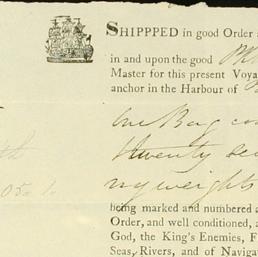 SHIPPPED in good Order
in and upon the good
Master for this present Voya
anchor in the Harbour of
One Bag
twenty
weights
being marked and numbered a
Order, and well conditioned, a
God, the King's Enemies, F
Seas, Rivers, and of Navigat